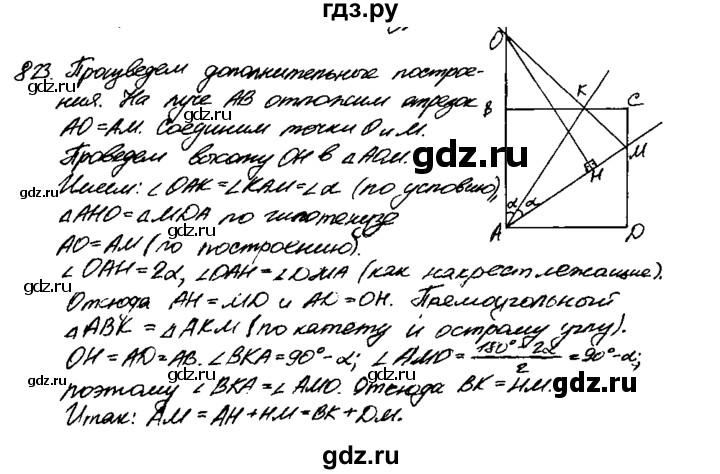 гдз.ру
823. Произведем дополнительные построе-
ния. На луче AB отложим отрезок
AO = AM. Соединим точки O и M.
Проведем высоту OH в △AOM.
Имеем: ∠OAK = ∠KAM = ∠α (по условию),
△AHO = △MDA по гипотенузе
AO = AM (по построению).
∠OAH = 2α, ∠OAH = ∠DMA (как накрест лежащие).
Отсюда AH = MD и AD = OH. Прямоугольный
△ABK = △AKM (по катету и острому углу).
OH = AD = AB. ∠BKA = 90° - α; ∠AMO = 180° - 2α / 2 = 90° - α;
поэтому ∠BKA = ∠AMO. Отсюда BK = HM.
Итак: AM = AH + HM = BK + DM.
O
B
K
C
M
H
α
α
A
D
гдз.ру
гдз.ру
гдз.ру